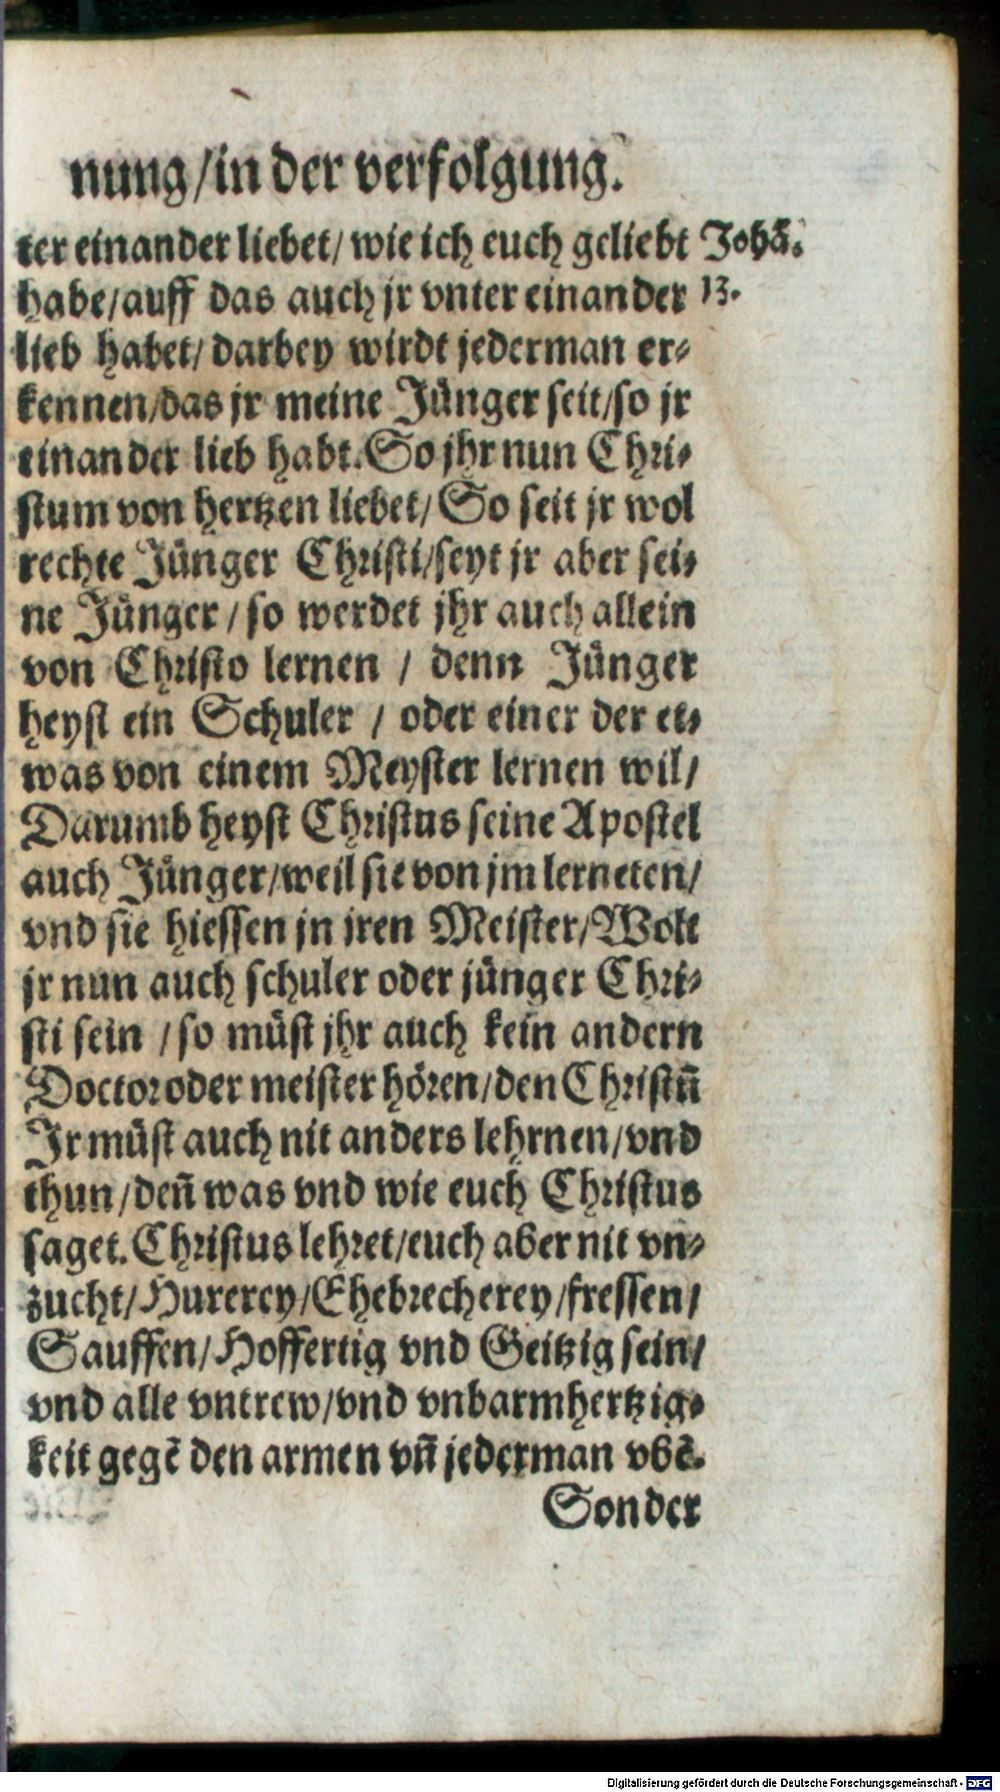 nung/in der verfolgung.
ter einander liebet/ wie ich euch geliebt Johā.
habe/auff das auch jr vnter einander 13.
lieb habet/ darbey wirdt jederman er-
kennen/das jr meine Jünger seit/so jr
einander lieb habt. So jhr nun Chri-
stum von hertzen liebet/ So seit jr wol
rechte Jünger Christi/seyt jr aber sei-
ne Jünger/ so werdet jhr auch allein
von Christo lernen / denn Jünger
heyst ein Schuler / oder einer der et-
was von einem Meyster lernen wil/
Darumb heyst Christus seine Apostel
auch Jünger/weil sie von jm lerneten/
vnd sie hiessen jn jren Meister/Wolt
jr nun auch schuler oder jünger Chri-
sti sein /so müst jhr auch kein andern
Doctor oder meister hören/den Christū
Jr müst auch nit anders lehrnen/vnd
thun/deñ was vnd wie euch Christus
saget. Christus lehret/euch aber nit vn-
zucht/Hurerey/Ehebrecherey/fressen/
Sauffen/Hoffertig vnd Geitzig sein/
vnd alle vntrew/vnd vnbarmhertzig-
keit gegē den armen vñ jederman vbē.
Sonder
Digitalisierung gefördert durch die Deutsche Forschungsgemeinschaft - DFG